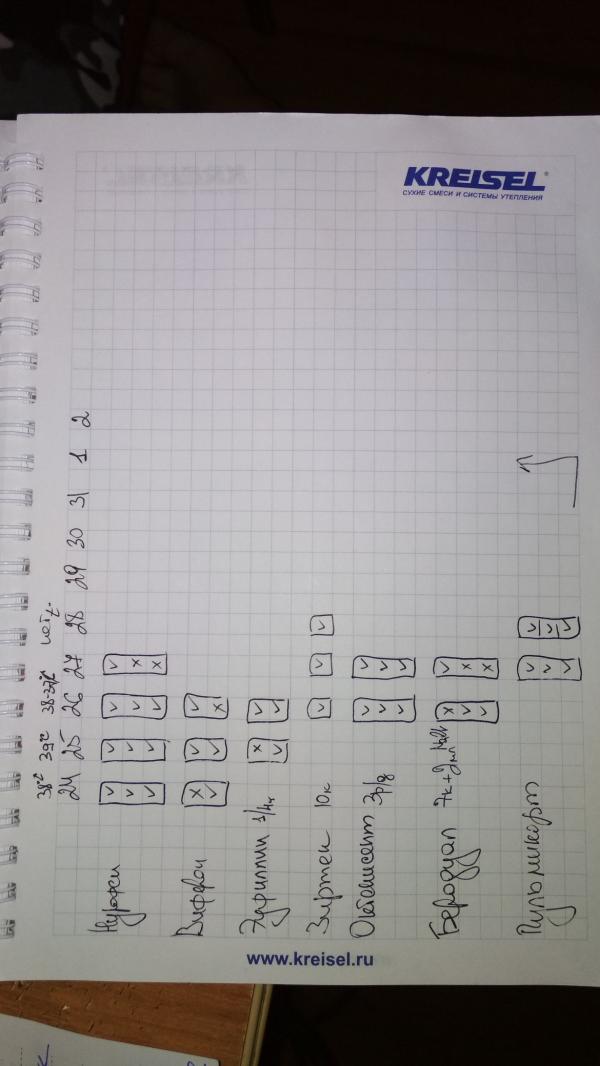 KREISEL®
СУХИЕ СМЕСИ И СИСТЕМЫ УТЕПЛЕНИЯ
38°C 39°C 38-37°C нет t.
24 25 26 27 28 29 30 31 1 2
Нурофен v v v v v v v v v v x x
Виферон x v v v v x
Эуфиллин 1/4 x v v v
Зиртек 10к v v v
Октенисепт 3р/д v v v v v v
Беродуал 7к+2мл x v v v x x
Пульмикорт v v v v v v
www.kreisel.ru